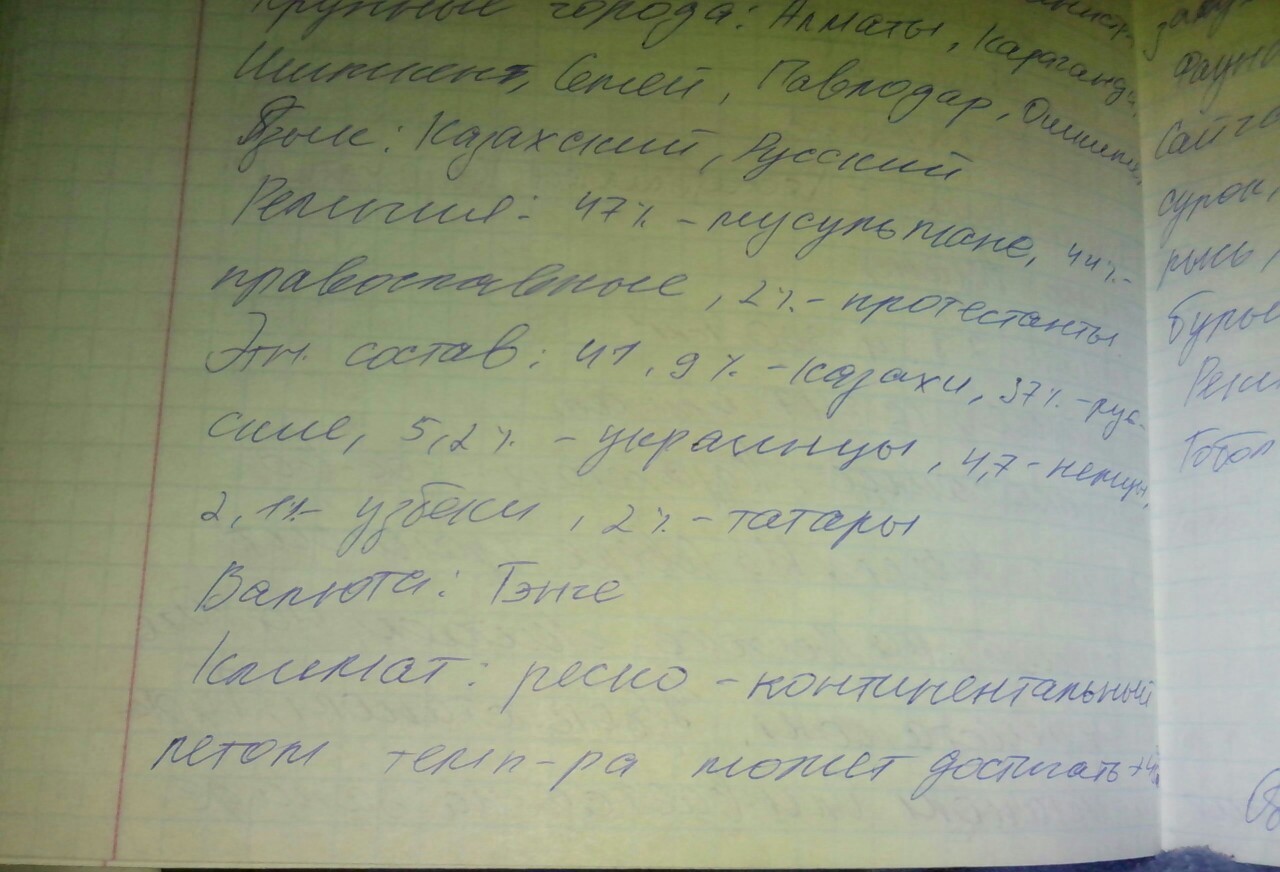 Крупные города: Алматы, Караганда,
Шимкент, Семей, Павлодар,
Язык: Казахский, Русский
Религия: 47% - мусульмане, 44% -
православные, 2% - протестанты
Этн. состав: 41,9% - казахи, 37% - рус-
ские, 5,2% - украинцы, 4,7 - немцы,
2,1% узбеки, 2% - татары
Валюта: Тэнге
Климат: реско - континентальный
летом темп-ра может достигать
Сайга
сурок,
рысь,